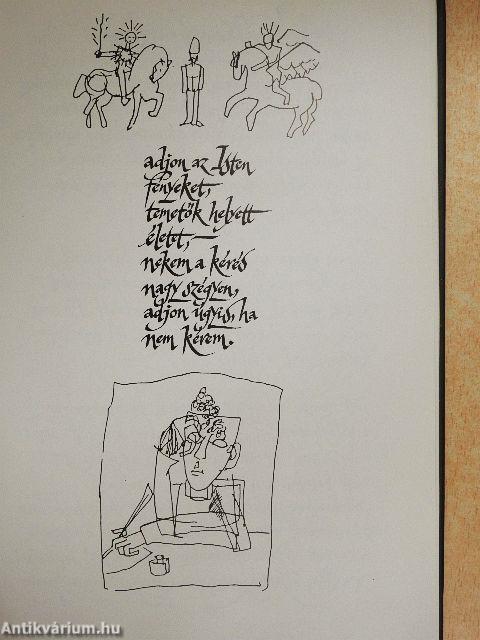 adjon az Isten
fényeket,
temetők helyett
életet, —
nekem a kérés
nagy szégyen,
adjon úgyis, ha
nem kérem.
Antikvárium.hu